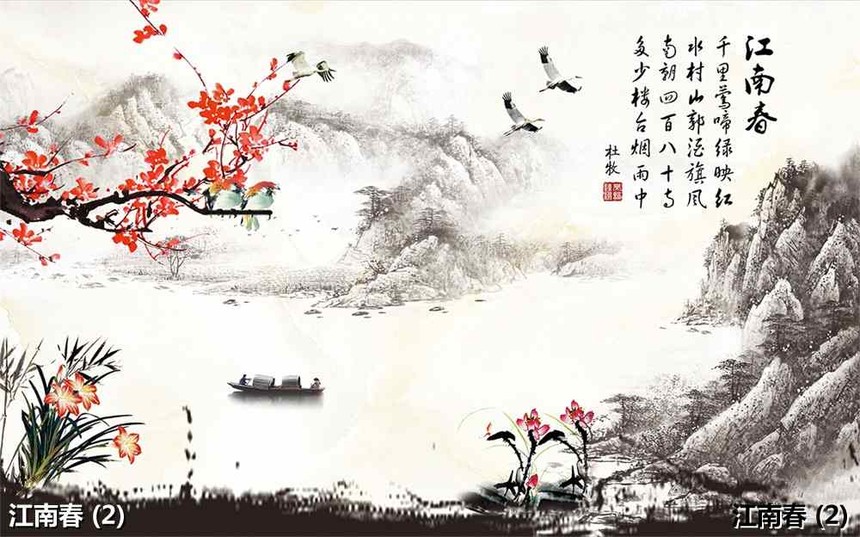 江南春
千里莺啼绿映红
水村山郭酒旗风
南朝四百八十寺
多少楼台烟雨中
杜牧
江南春 (2)
江南春 (2)